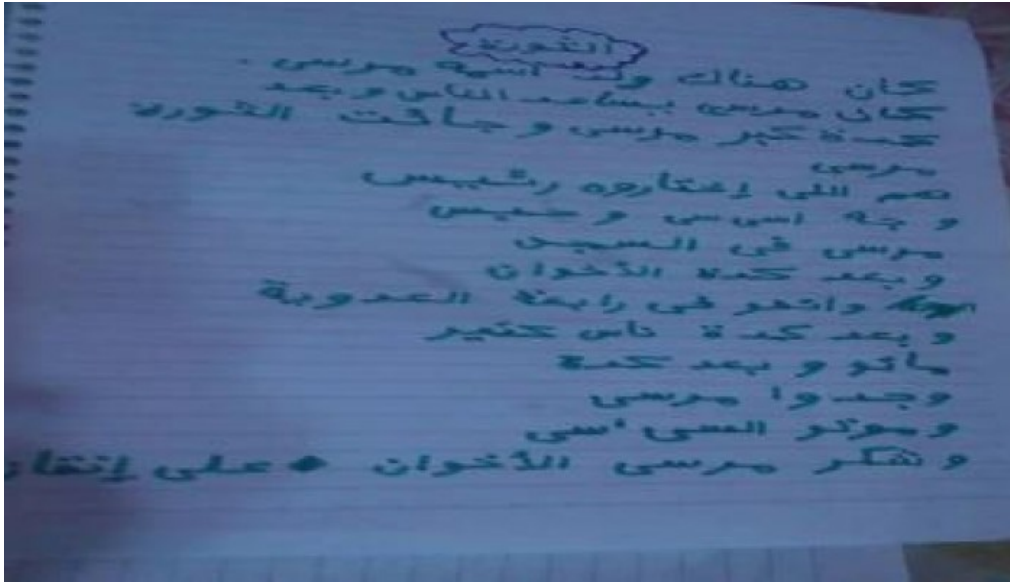 الثورة
كان هناك ولد اسمه مرسى .
كان مرسى بيساعد الناس وبعد
كدة كبر مرسى وجائت الثورة
مرسى
هم اللى إختاروه رئيس
وجه اسى سى وحبس
مرسى فى السجن
وبعد كدة الأخوان
واتفو فى رابعة العدوية
وبعد كدة ناس كتير
ماتو وبعد كدة
وجدوا مرسى
وموتو السى اسى
وشكر مرسى الأخوان على إنقاذ